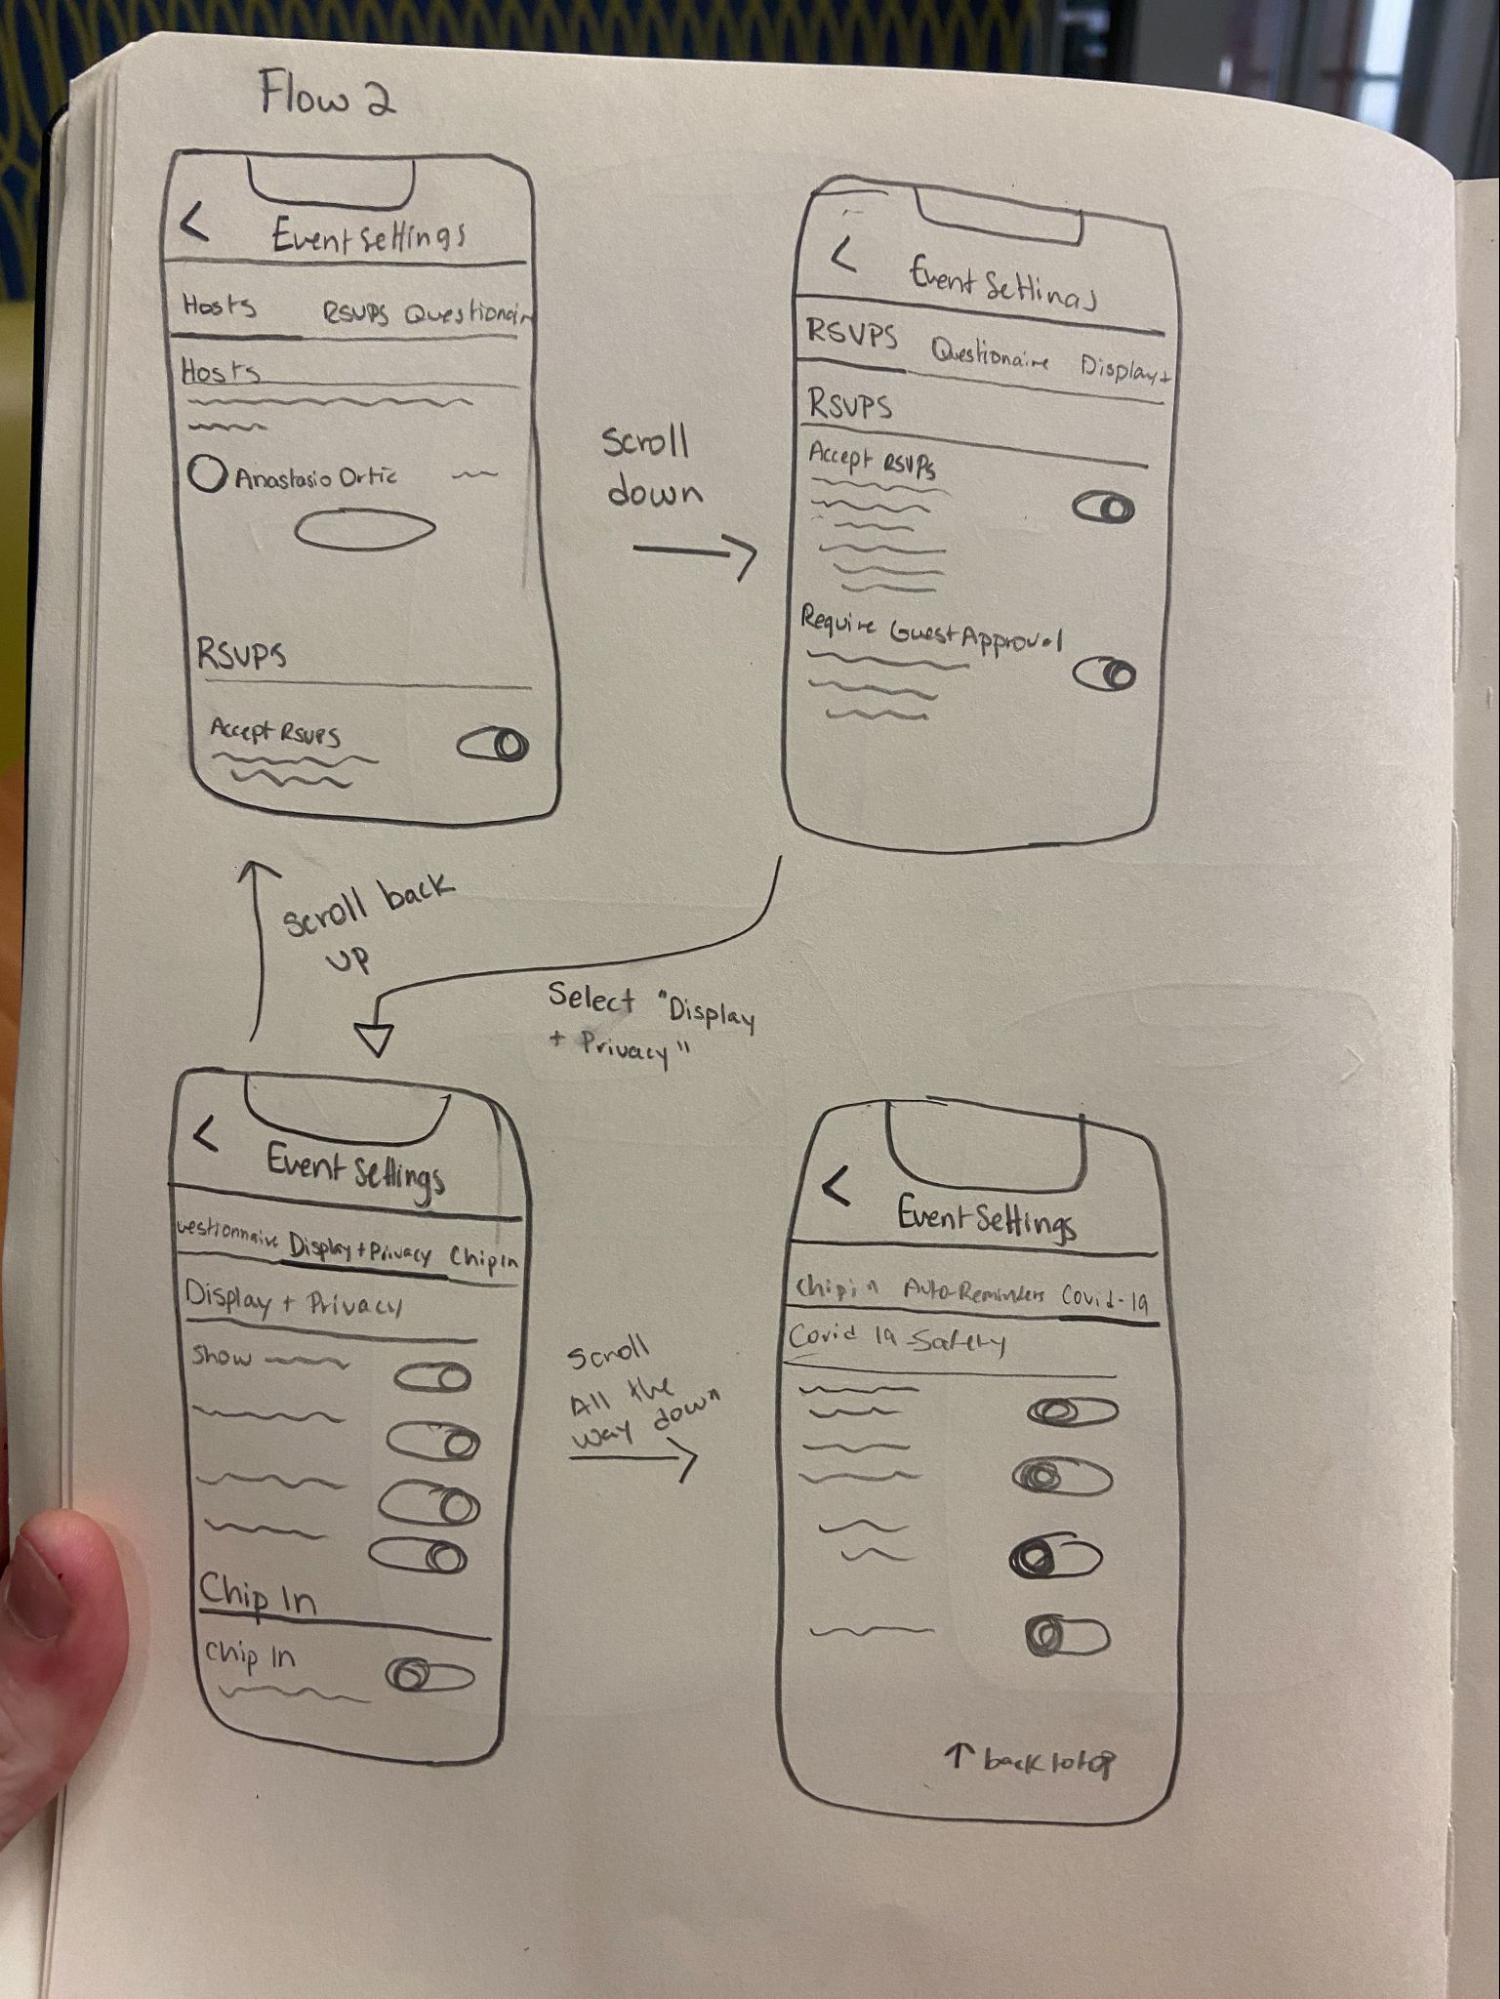 Flow 2
<
Event Settings
Hosts RSVPS Questionair
Hosts
Anastasio Ortiz
RSVPS
Accept RSVPS
Scroll
down
<
Event Settings
RSVPS Questionaire Display+
RSVPS
Accept RSVPS
Require Guest Approval
Scroll back
UP
Select "Display
+ Privacy"
<
Event Settings
uestionnaire Display + Privacy Chip In
Display + Privacy
Show
Chip In
Chip In
Scroll
All the
way down
<
Event Settings
Chip in Auto-Reminders Covid-19
Covid 19 Safety
↑ back to top